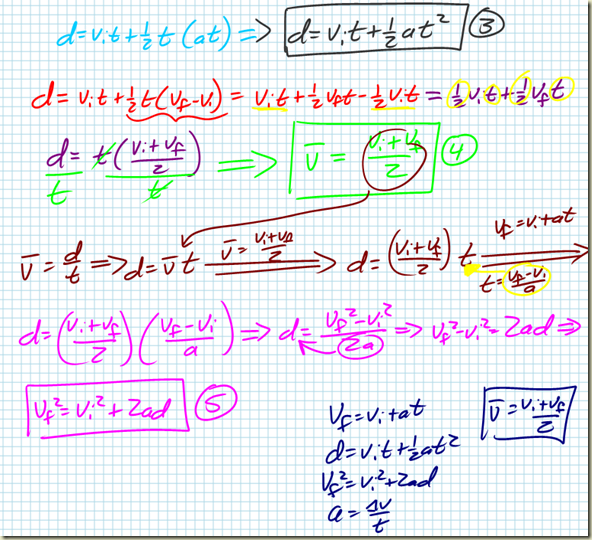 d = vᵢt + ½t (at) => d = vᵢt + ½at² ③
d = vᵢt + ½t(v_f - vᵢ) = vᵢt + ½v_ft - ½vᵢt = ½vᵢt + ½v_ft
d/t = t((vᵢ + v_f)/2)/t => v̄ = (vᵢ + v_f)/2 ④
v̄ = d/t => d = v̄t => v̄ = (vᵢ + v_f)/2 d = ((vᵢ + v_f)/2) t => v_f = vᵢ + at t = (v_f - vᵢ)/a
d = ((vᵢ + v_f)/2)((v_f - vᵢ)/a) => d = (v_f² - vᵢ²)/2a => v_f² - vᵢ² = 2ad =>
v_f² = vᵢ² + 2ad ⑤
v_f = vᵢ + at v̄ = (vᵢ + v_f)/2
d = vᵢt + ½at²
v_f² = vᵢ² + 2ad
a = Δv/t